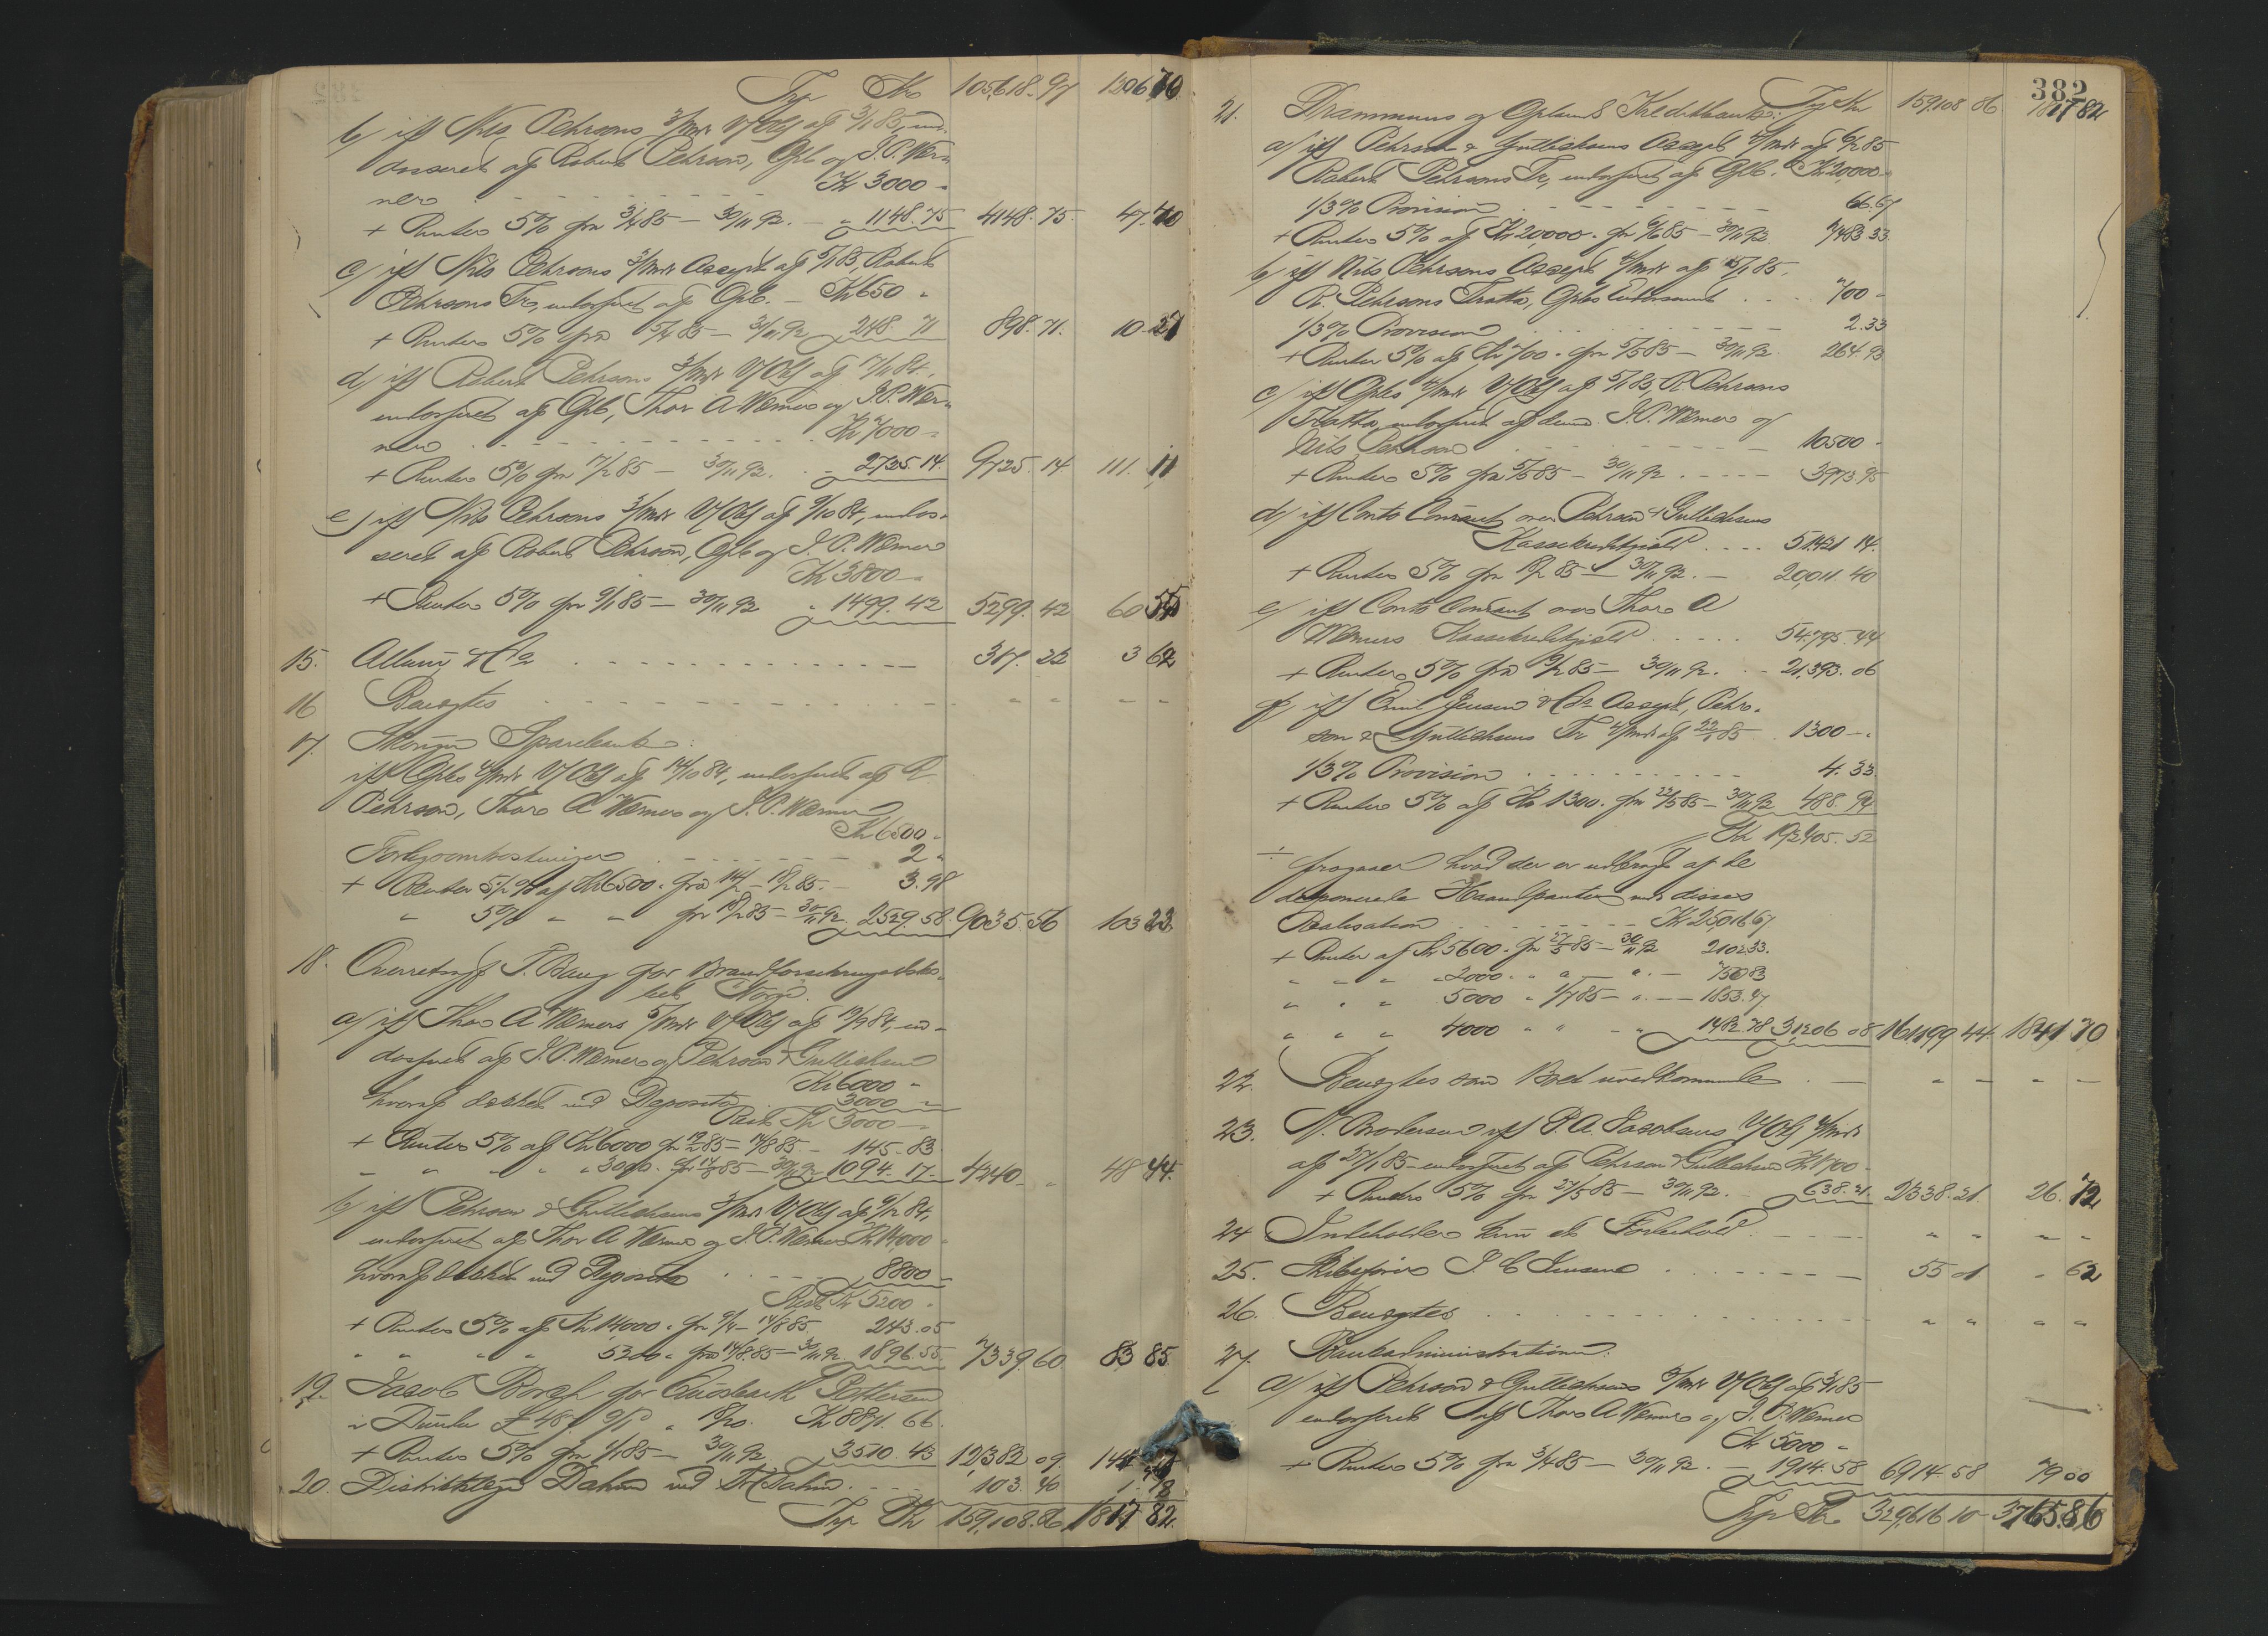 Trp Kr 105,618. 97 1206 70
b/ iflg Nils Pehrsons 3/mdr V/Obl af 3/1 85, en-
dosseret af Robert Pehrson, Grb. og J. P. Wer-
ner Kr 3000 -
+ Renter 5% fra 3/4 85 - 30/11 92. - " 1148. 75 4148. 75. 47. 40
c/ iflg Nils Pehrsons 3/mdr Accept af 5/1 85, Robert
Pehrsons Tr, endosseret af Grb. - Kr 650 "
+ Renter 5% fra 5/4 85 - 30/11 92 248 71 898. 71. 10. 27
d/ iflg Robert Pehrsons 3/mdr V/Obl af 17/11 84,
endosseret af Grb, Thor A Werner og J. P. Wer-
ner Kr 7000 -
+ Renter 5% fra 17/2 85 - 30/11 92. 2725. 14. 9725. 14 111. 11
e/ iflg Nils Pehrsons 3/mdr V/Obl af 9/10 84, endos-
seret af Robert Pehrson, Grb og J. P. Werner
Kr 3800 -
+ Renter 5% fra 9/1 85 - 30/11 92 " 1499. 42 5299. 42 60 55
15. & Co 317. 22 3 62
16 Benegtes - - - -
17. Sparebank:
iflg Grbs 4/mdr V/Obl af 14/10 84, endosseret af R
Pehrson, Thor A Werner og J. P. Werner
Kr 6500 -
2 "
+ Renter 5½% af Kr 6500. fra 14/2 - 18/2 85. - 3. 98
" 5% " " fra 18/2 85 - 30/11 92. 2529. 58. 9035. 56 103 23
18. Overretssagf. T. Bang for Brandforsikringsselska-
bet Norge.
a/ iflg Thor A Werners 5/mdr V/Obl af 19/9 84, en-
dosseret af J. P. Werner og Pehrson & Gullichsen
Kr 6000 -
hvoraf dækket ved Deposita 3000 -
Rest Kr 3000 -
+ Renter 5% af Kr 6000 fra 19/2 85 - 14/8 85 - 145. 83
" " " " " 3000. fra 14/8 85 - 30/11 92 1094. 17 - 4240 - " 48 44.
b/ iflg Pehrson & Gullichsens 3/mdr V/Obl af 9/12 84,
endosseret af Thor A Werner og J. P. Werner Kr 14,000 -
hvoraf dækket ved Deposita 8800 -
Rest Kr 5200 -
+ Renter 5% af Kr 14,000. fra 9/4 - 14/8 85 243. 05
" " " " 5200 " fra 14/8. 85 - 30/11 92 1896. 55. 7339. 60 83 85
19. Jacob Borch for
£ 487. Kr 8871. 66.
+ Renter 5% fra 1/1 85 - 30/11 92 3510. 43 12,382 09.
20. Dahm ved Dahm. 103. 40
Trp Kr 159,108. 86 1817. 82.
382
21. Drammens og Oplands Kreditbank: Trp Kr 159,108 86 1817 82
a/ iflg Pehrson & Gullichsens Accept 4/mdr af 6/2 85
Robert Pehrsons Tr, endosseret af Grb. Kr 20,000 -
1/3% Provision 66. 67
+ Renter 5% af Kr 20,000. fra 6/6 85 - 30/11 92 7483 33
b/ iflg Nils Pehrsons Accept 4/mdr af 15/1 85.
R. Pehrsons Tratta, Grbs Endossement 700 -
1/3% Provision 2. 33
+ Renter 5% af Kr 700. fra 15/5 85 - 30/11 92. 264. 93
c/ iflg Grbs 4/mdr V/Obl af 5/1 85, R. Pehrsons
Tratta, endosseret af denne J. P. Werner og
Nils Pehrson 10500 -
+ Renter 5% fra 5/5 85 - 30/11 92. 3973. 95
d/ iflg Conto Courant over Pehrson & Gullichsens
Kassekreditgjæld 51,421 14.
+ Renter 5% fra 18/2 85 - 30/11 92. - 20,011. 40
e/ iflg Conto Courant over Thor A
Werners Kassekreditgjæld 54,795. 44
+ Renter 5% fra 10/2 85 - 30/11 92. - 21,393. 06
f/ iflg Emil Jensen & Co Accept, Pehr-
son & Gullichsens Tr 4/mdr af 22/1 85 1300 - -
1/3% Provision 4. 33.
+ Renter 5% af Kr 1300. fra 22/5 85 - 30/11 92 488. 94
Kr 192,405. 52
÷ fragaaer hvad der er udbragt af de
deponerede Haandpanter ved disses
Realisation Kr 25,016. 67
+ Renter af Kr 5600. fra 27/5 85 - 30/11 92 2102 33.
" " " " 2000. " " - " - 750 83
" " " 5000 " 1/7 85 - " - 1853. 47
" " " 4000 " " " 1482. 78 31,206 08 161,199 44. 1841 70
22. Benegtes som Boet uvedkommende - " - - -
23. N. Brodersen iflg P. A. Jacobsens V/Obl 4/mdr
af 27/1 85 endosseret af Pehrson & Gullichsen Kr 1700 -
+ Renter 5% fra 27/5 85 - 30/11 92. 638. 21. 2338. 21. 26. 72
24 Indeholder kun et Forbehold. " " " "
25. J. C Jensen 55 01 " 62
26. Benegtes " " " "
27. Bankadministrationen:
a/ iflg Pehrson & Gullichsens 3/mdr V/Obl af 3/1 85
endosseret af Thor A Werner og J. P. Werner
Kr 5000 -
+ Renter 5% fra 3/4 85 - 30/11 92. - 1914. 58 6914. 58 79 00
Trp Kr 329,616 10 - 3765. 86